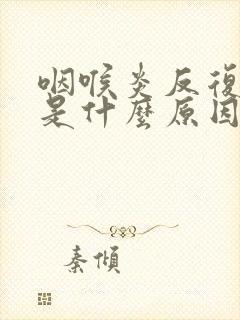 咽喉炎反復
是什麼原因
秦傾